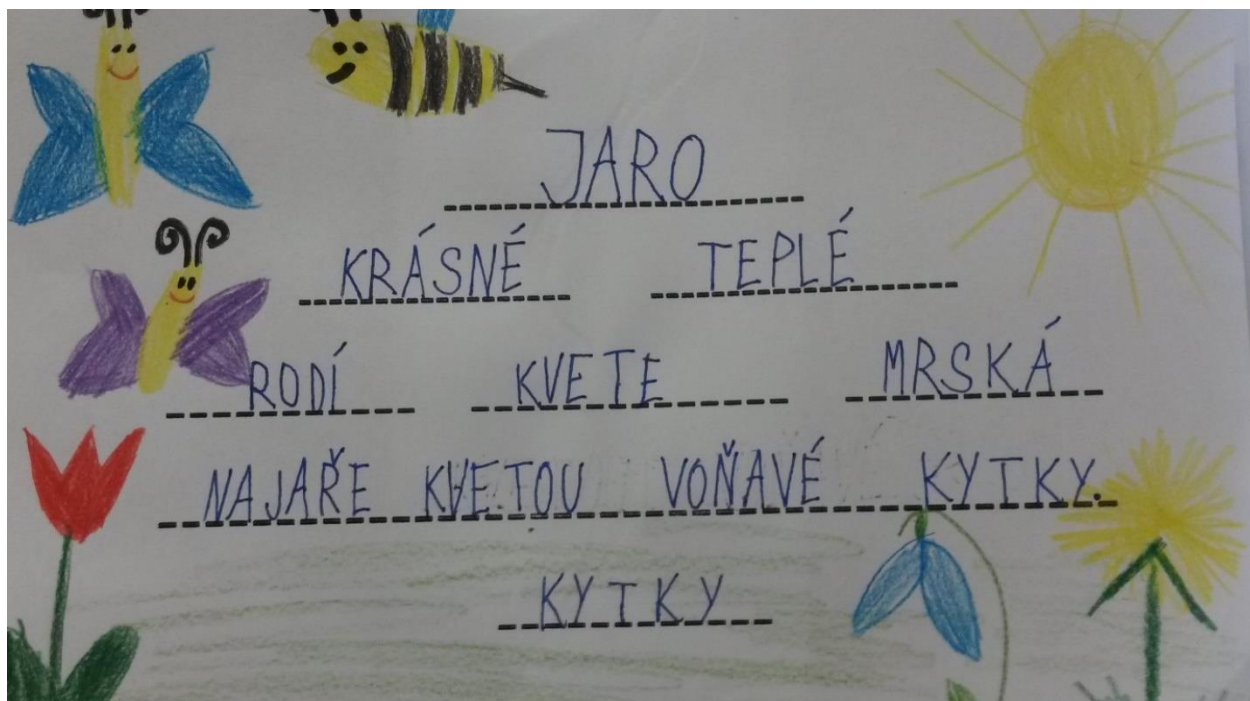 JARO
KRÁSNÉ TEPLÉ
RODÍ KVETE MRSKÁ
NAJAŘE KVETOU VOŇAVÉ KYTKY.
KYTKY